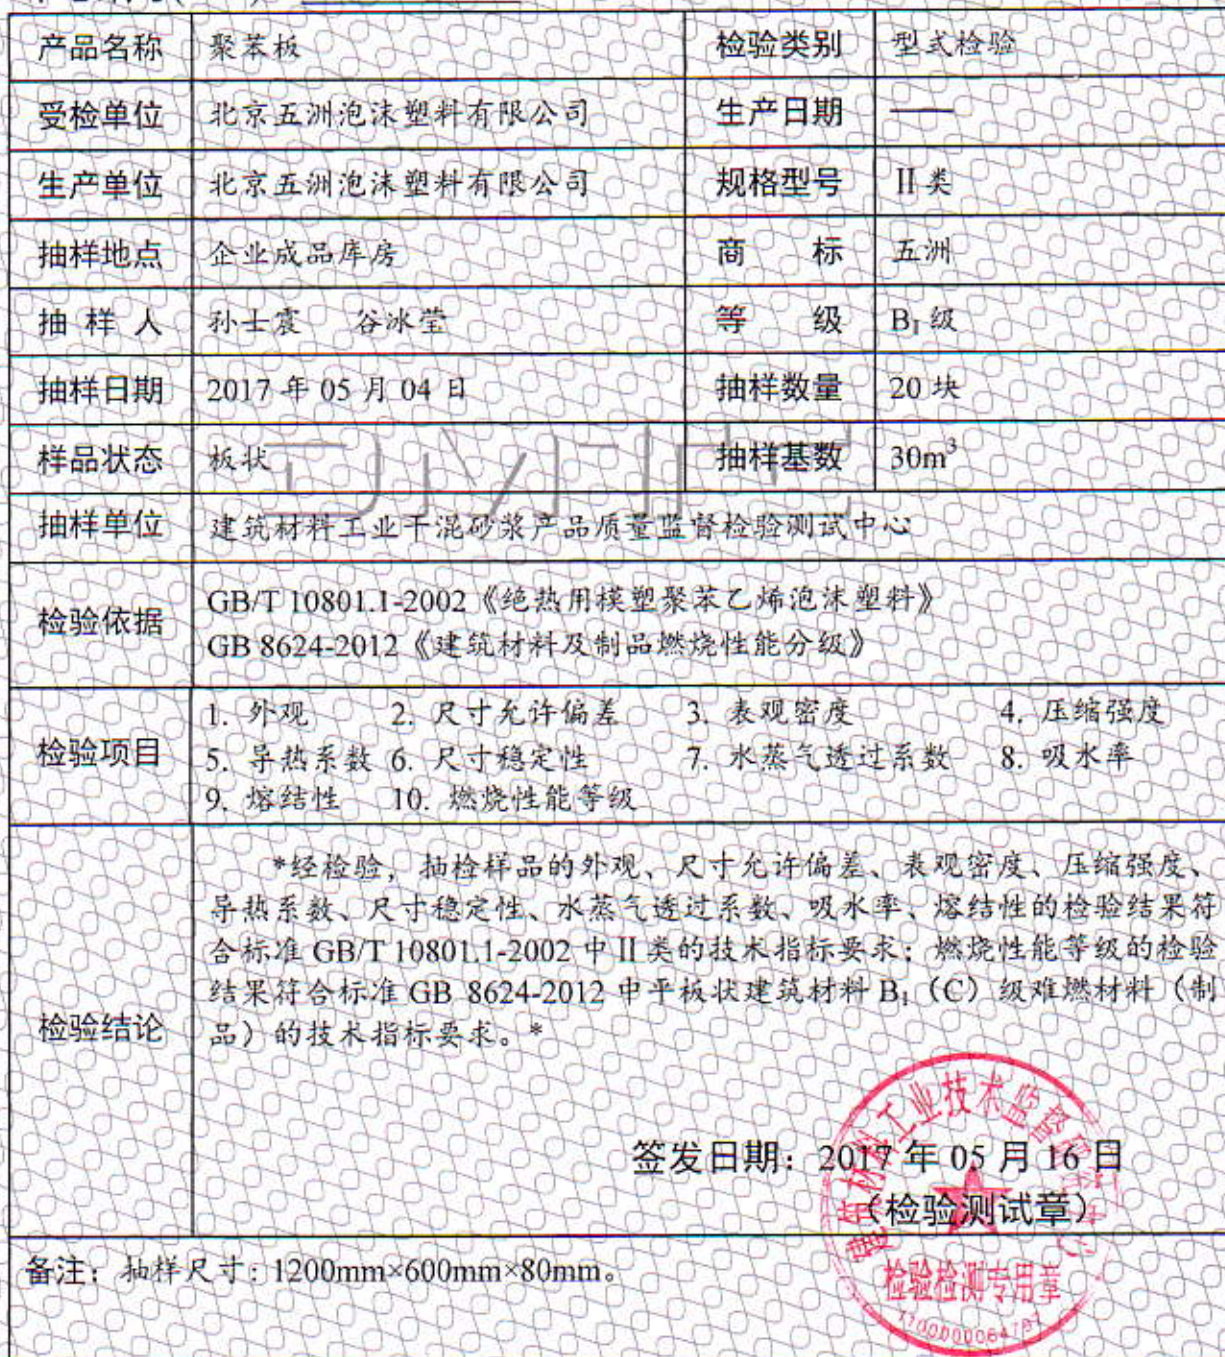 产品名称 聚苯板 检验类别 型式检验
受检单位 北京五洲泡沫塑料有限公司 生产日期 ——
生产单位 北京五洲泡沫塑料有限公司 规格型号 Ⅱ类
抽样地点 企业成品库房 商 标 五洲
抽 样 人 孙士震 谷冰莹 等 级 B₁级
抽样日期 2017 年 05 月 04 日 抽样数量 20 块
样品状态 板状 抽样基数 30m³
抽样单位 建筑材料工业干混砂浆产品质量监督检验测试中心
检验依据 GB/T 10801.1-2002《绝热用模塑聚苯乙烯泡沫塑料》
GB 8624-2012《建筑材料及制品燃烧性能分级》
检验项目 1. 外观 2. 尺寸允许偏差 3. 表观密度 4. 压缩强度
5. 导热系数 6. 尺寸稳定性 7. 水蒸气透过系数 8. 吸水率
9. 熔结性 10. 燃烧性能等级
检验结论 *经检验，抽检样品的外观、尺寸允许偏差、表观密度、压缩强度、
导热系数、尺寸稳定性、水蒸气透过系数、吸水率、熔结性的检验结果符
合标准 GB/T 10801.1-2002 中Ⅱ类的技术指标要求；燃烧性能等级的检验
结果符合标准 GB 8624-2012 中平板状建筑材料 B₁（C）级难燃材料（制
品）的技术指标要求。*
签发日期：2017 年 05 月 16 日
（检验测试章）
检验检测专用章
备注：抽样尺寸：1200mm×600mm×80mm。